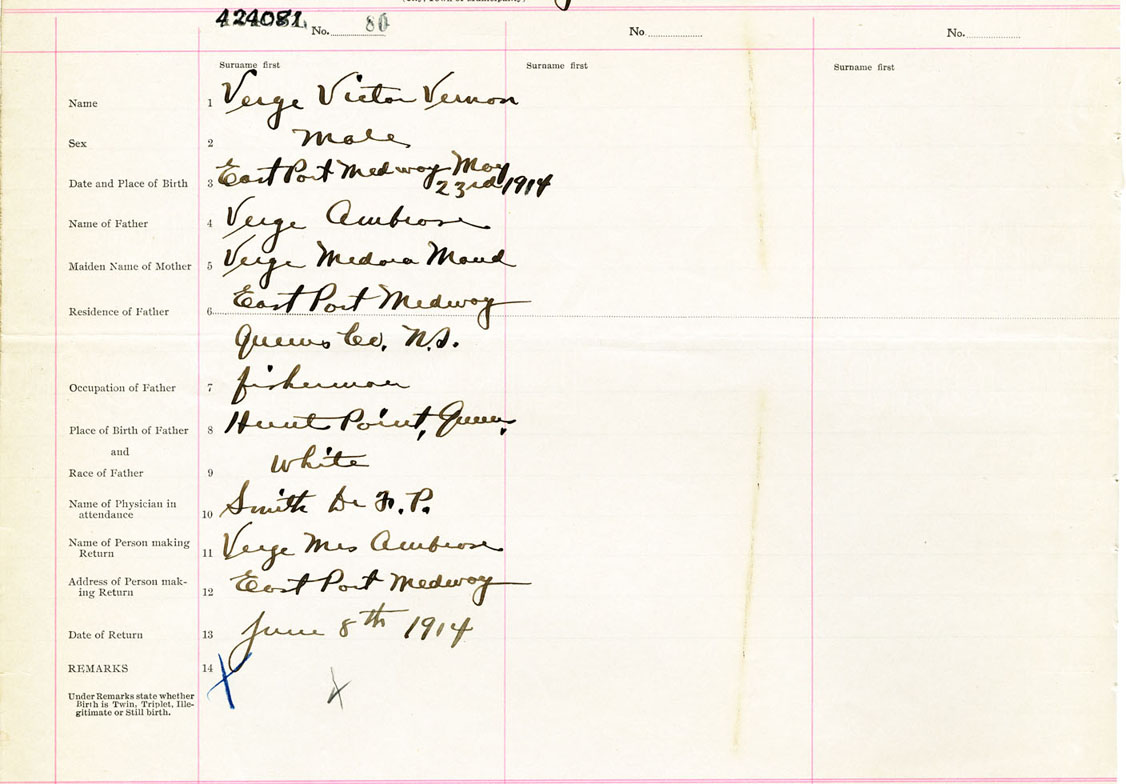 424081 No. 80 No. No.
Surname first Surname first Surname first
Name 1 Verge Victor Vernon
Sex 2 Male
Date and Place of Birth 3 East Port Medway May
23rd 1914
Name of Father 4 Verge Ambrose
Maiden Name of Mother 5 Verge Medora Maud
Residence of Father 6 East Port Medway
Queens Co, N.S.
Occupation of Father 7 fisherman
Place of Birth of Father 8 Hunt Point, Queens
and
Race of Father 9 White
Name of Physician in
attendance 10 Smith Dr F. P.
Name of Person making
Return 11 Verge Mrs Ambrose
Address of Person mak-
ing Return 12 East Port Medway
Date of Return 13 June 8th 1914
REMARKS 14 X X
Under Remarks state whether
Birth is Twin, Triplet, Ille-
gitimate or Still birth.